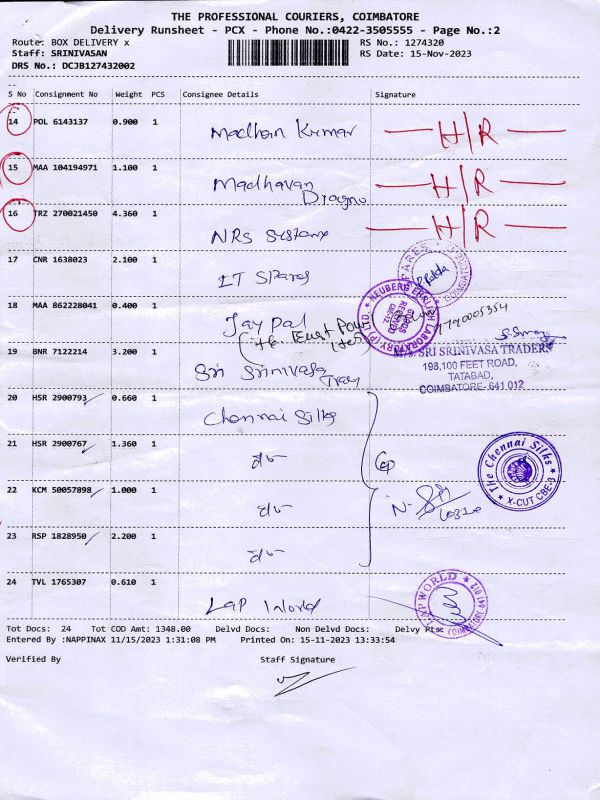 THE PROFESSIONAL COURIERS, COIMBATORE
Delivery Runsheet - PCX - Phone No.:0422-3505555 - Page No.:2
Route: BOX DELIVERY x
RS No.: 1274320
Staff: SRINIVASAN
RS Date: 15-Nov-2023
DRS No.: DCJB127432002
S No Consignment No Weight PCS Consignee Details Signature
14 POL 6143137 0.900 1 Madhan Kumar H/R
15 MAA 104194971 1.100 1 Madhavan H/R
16 TRZ 270021450 4.360 1 NRS Systems H/R
17 CNR 1638023 2.100 1 IT Spares
18 MAA 862228041 0.400 1 Jay pal
NEUBERG EHRLICH LABORATORY (P) LTD.
19 BNR 7122214 3.200 1 Sri Srinivasa
M/s. SRI SRINIVASA TRADERS
198,100 FEET ROAD,
TATABAD,
COIMBATORE- 641 012
20 HSR 2900793 0.660 1 Chennai Silks
21 HSR 2900767 1.360 1
The Chennai Silks
X-CUT CBE-3
22 KCM 50057898 1.000 1
23 RSP 1828950 2.200 1
24 TVL 1765307 0.610 1 Lap World
LAPWORLD
Tot Docs: 24 Tot COD Amt: 1348.00 Delvd Docs: Non Delvd Docs: Delvy Pts:
Entered By :NAPPINAX 11/15/2023 1:31:08 PM Printed On: 15-11-2023 13:33:54
Verified By Staff Signature